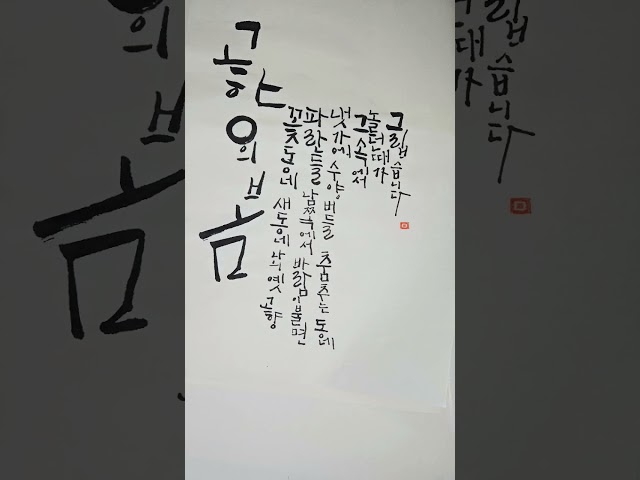 고향의 봄
꽃동네 새동네 나의 옛 고향
파란들 남쪽에서 바람이 불면
냇가에 수양버들 춤추는 동네
그 속에서
놀던 때가
그립습니다